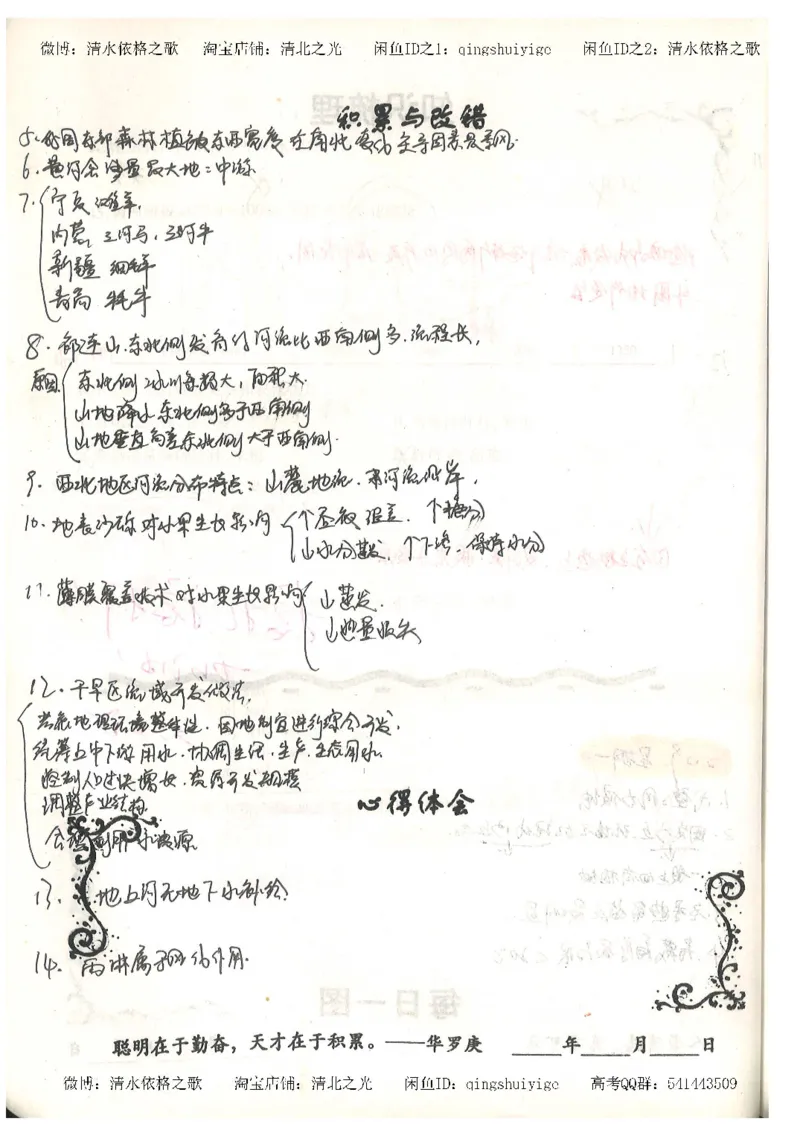 微博：清水依格之歌 淘宝店铺：清北之光 闲鱼ID之1：qingshuiyige 闲鱼ID之2：清水依格之歌
积累与改错
5. 我国东部森林植被东西宽度 在南北 主导因素是季风.
6. 黄河含沙量最大地：中游.
7. 宁夏 滩羊,
内蒙 三河马, 三河牛
新疆 细毛羊
青高 牦牛
8. 祁连山.东北侧发育的河流比西南侧多.流程长,
原因 东北侧 冰川 大, 面积大.
山地降水 东北侧多于西南侧
山地垂直高差东北侧大于西南侧.
9. 西北地区河流分布特点：山麓地带.
10. 地表沙砾对水果生长影响 ↑昼夜温差. ↑糖分
↓水分蒸发. ↑下渗. 保持水分
11. 薄膜覆盖技术对水果生长影响 ↓蒸发.
↓热量散失
12. 干旱区流域开发做法,
考虑地理环境整体性. 因地制宜进行综合开发,
统筹上中下游用水. 协调生活.生产.生态用水
控制人口过快增长. 资源开发规模
调整产业结构
心得体会
合理利用水资源
13. 地上河无地下水补给.
14. 属于风化作用.
聪明在于勤奋，天才在于积累。——华罗庚 ____年____月____日
微博：清水依格之歌 淘宝店铺：清北之光 闲鱼ID：qingshuiyige 高考QQ群：541443509